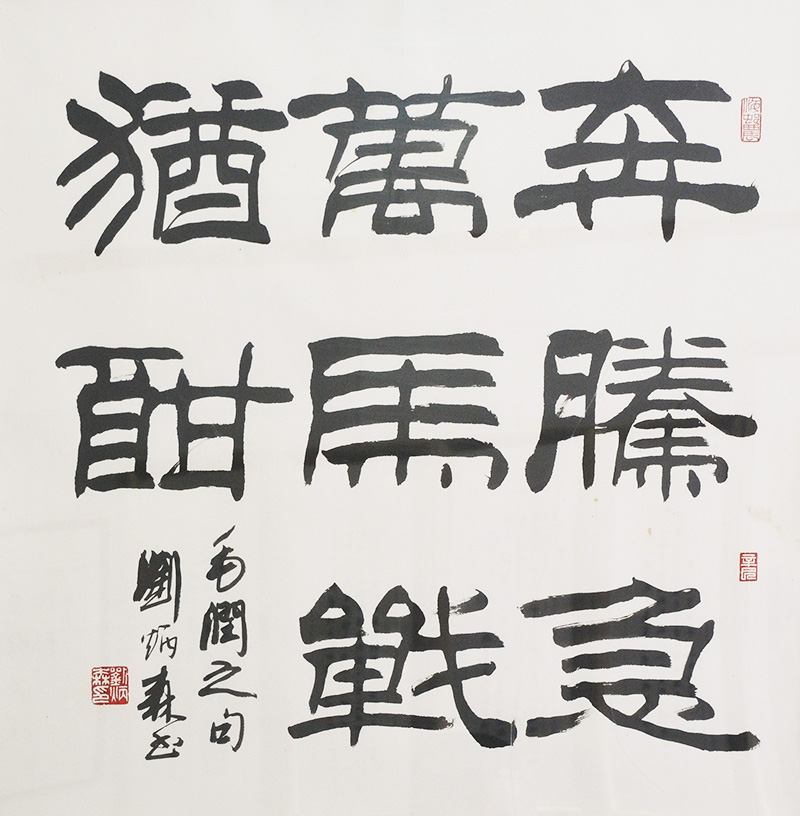 奔騰急
萬馬戰
猶酣
毛潤之句
劉炳森书
劉炳森印